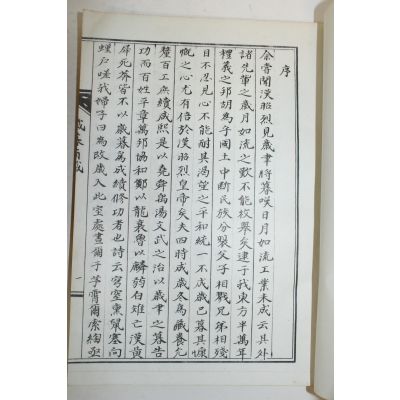 序
余嘗聞漢昭烈見歲聿將暮嘆日月如流工業未成云其外
諸先輩之歲月如流之歎不能枚擧矣逮于我東方半萬年
禮義之邦胡爲乎國土中断民族分裂父子相戕兄弟相殘
目不忍見心不能耐其渴望之平和統一不成歲已暮其慷
慨之心尤有倍於漢昭烈皇帝矣夫四時成歲冬爲藏養允
釐百工庶績咸熙是以堯舜禹湯文武之治以歲聿之暮告
功而百姓平章萬邦協和鄭以龍衰魯以麟白雉亡漢黄
犀死莽皆不以歲暮爲成績修功者也詩云穹窒熏鼠塞向
墐戶嗟我婦子曰爲改歲入此室處晝爾于茅宵爾索綯亟
歲暮
一